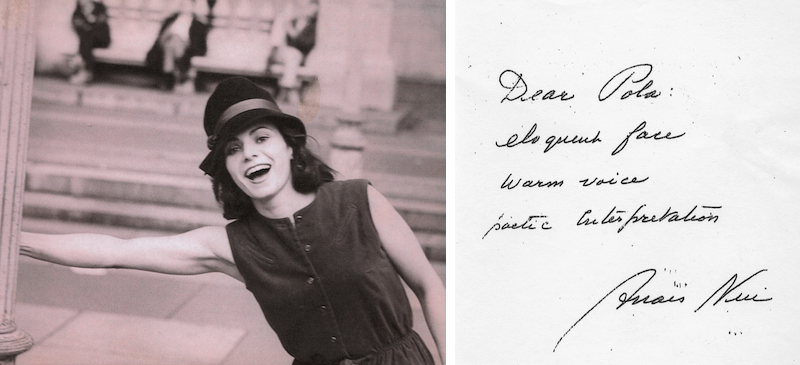 Dear Pola:
eloquent face
warm voice
poetic interpretation
Anais Nin